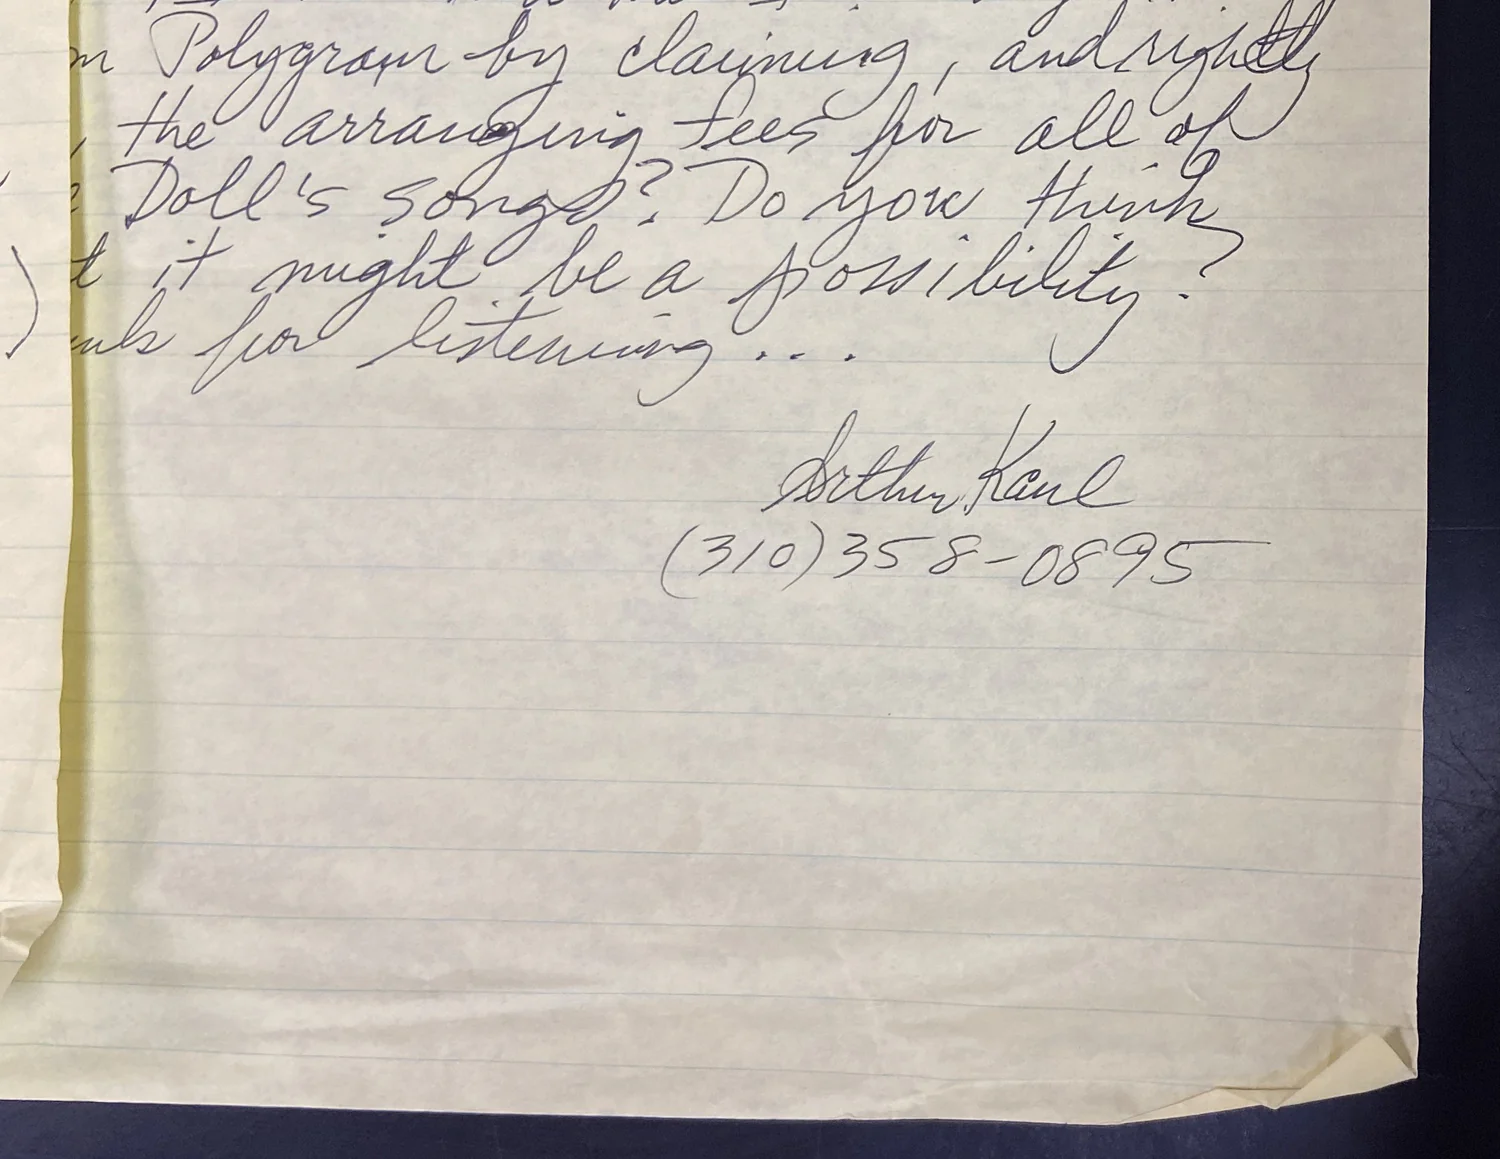 m Polygram by claiming, and rightly
, the arranging fees for all of
e Doll's songs? Do you think
t it might be a possibility?
anks for listening...
Arthur Kane
(310)358-0895